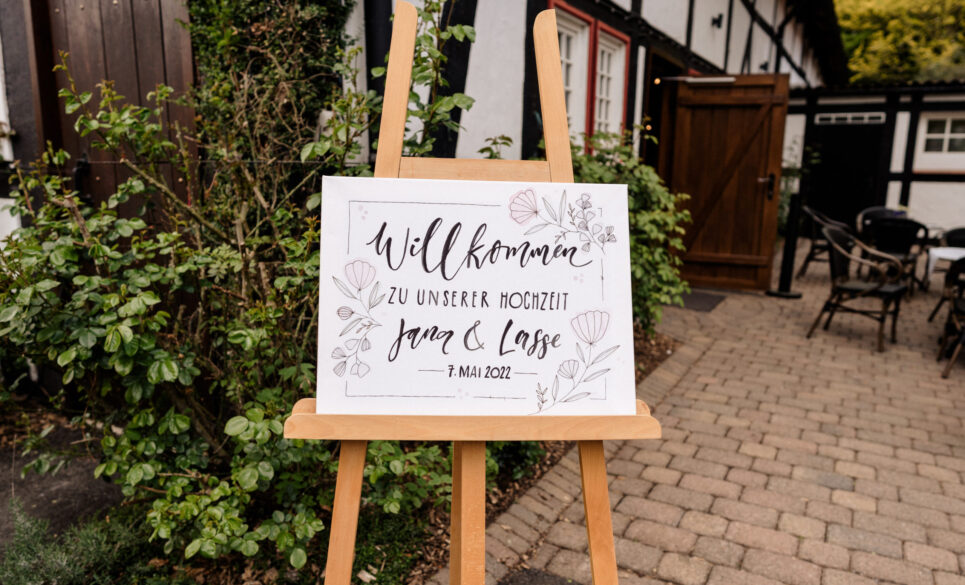 Willkommen
ZU UNSERER HOCHZEIT
Jana & Lasse
7. MAI 2022